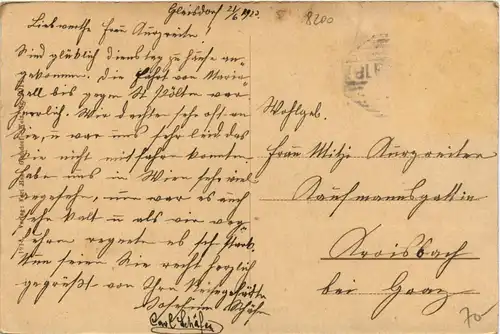 Gleisdorf 21/6 1913.
Liebwerthe Frau Kurzreiter!
Sind glücklich Dienstag zuhause an-
gekommen. Die Fahrt von Maria-
zell bis gegen St. Pölten war
herrlich. Wir dachten sehr oft an
Sie, u war uns sehr leid das
Sie nicht mitfahren konnten.
Haben uns in Wien sehr viel
angesehen, nur war es auch
sehr kalt u als wir weg
fuhren regnete es sehr stark.
Nun seien Sie recht herzlich
gegrüßt von Ihren
Josefine Schäfer
Carl Schäfer
8200
Wohlgeb.
Frau Mitzi Kurzreiter
Kaufmannsgattin
Kroisbach
bei Graz
70